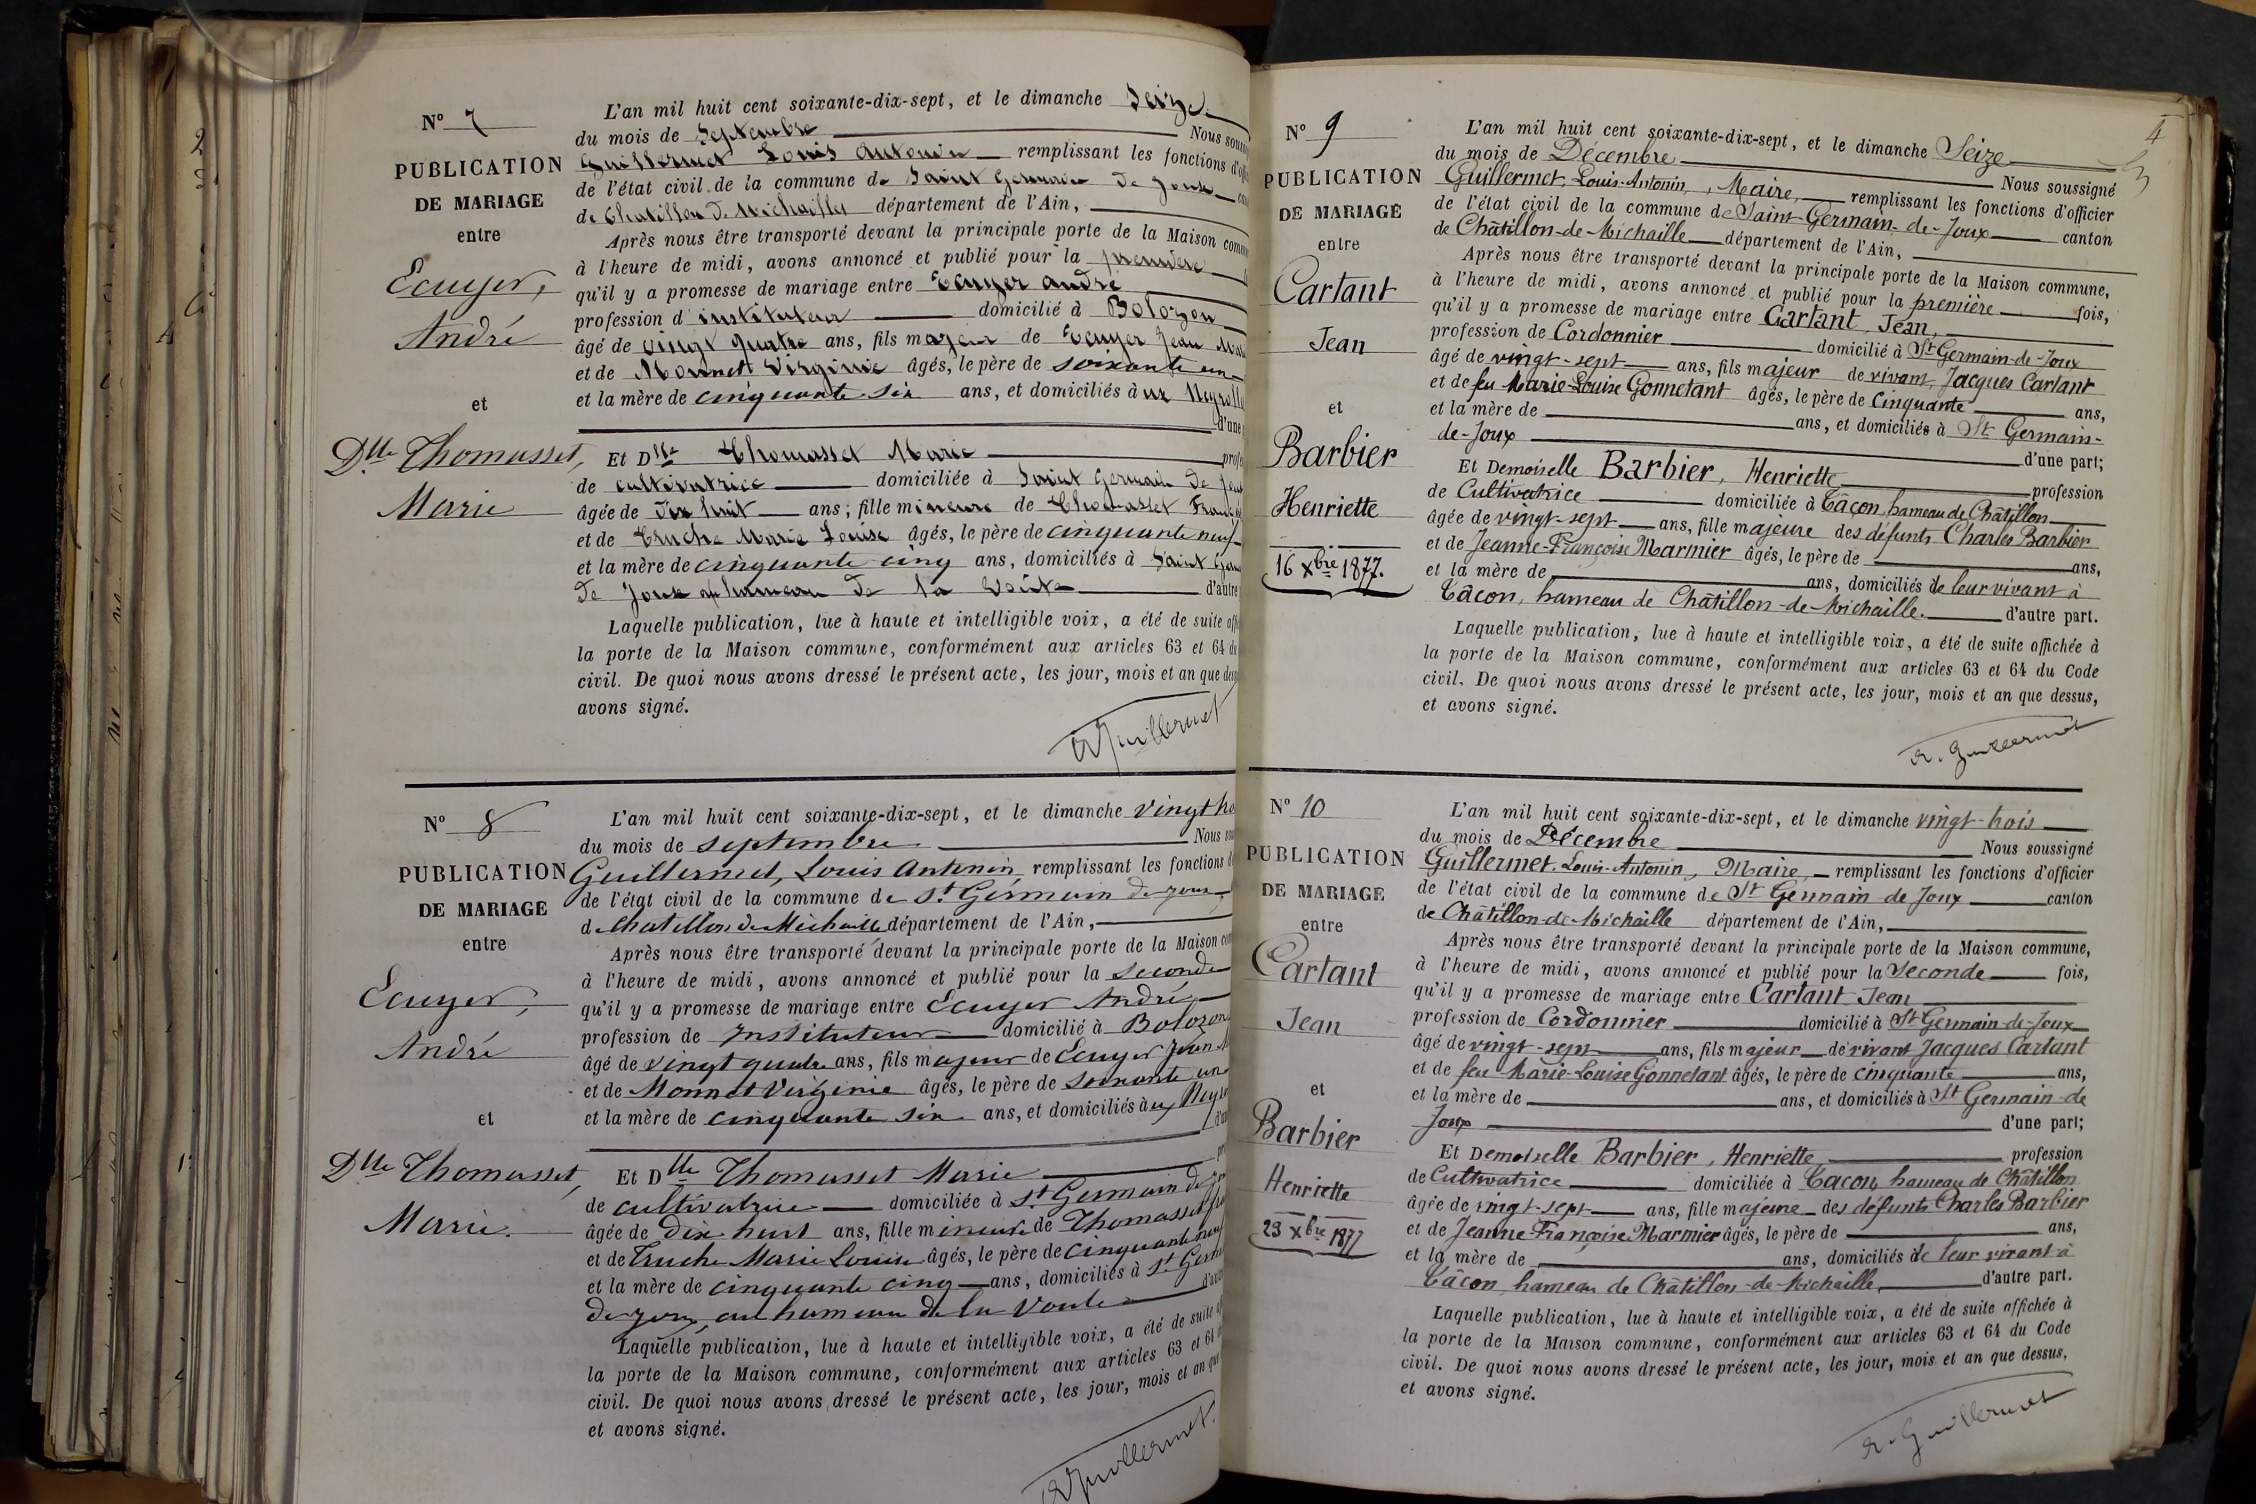 N° 7
PUBLICATION
DE MARIAGE
entre
Ecuyer,
André
et
Dlle Thomasset,
Marie
L'an mil huit cent soixante-dix-sept, et le dimanche Seize
du mois de Septembre Nous
Guillermet Louis Antonin remplissant les fonctions
de l'état civil de la commune de Saint Germain de Joux
de Chatillon de Michaille département de l'Ain,
Après nous être transporté devant la principale porte de la Maison
à l'heure de midi, avons annoncé et publié pour la première
qu'il y a promesse de mariage entre Ecuyer André
profession d'instituteur domicilié à Bolozon
âgé de vingt quatre ans, fils majeur de Ecuyer Jean
et de Monnet Virginie âgés, le père de soixante un
et la mère de cinquante six ans, et domiciliés à ux
d'une
Et Dlle Thomasset Marie
de cultivatrice domiciliée à Saint Germain de
âgée de dix huit ans, fille mineure de Thomasset
et de Truche Marie Louise âgés, le père de cinquante neuf
et la mère de cinquante cinq ans, domiciliés à Saint
de Joux au hameau de la Voûte d'autre
Laquelle publication, lue à haute et intelligible voix, a été de suite
la porte de la Maison commune, conformément aux articles 63 et 64
civil. De quoi nous avons dressé le présent acte, les jour, mois et an que
avons signé.
Guillermet
N° 8
PUBLICATION
DE MARIAGE
entre
Ecuyer,
André
et
Dlle Thomasset,
Marie.
L'an mil huit cent soixante-dix-sept, et le dimanche vingt
du mois de septembre Nous
Guillermet, Louis Antonin remplissant les fonctions
de l'état civil de la commune de St Germain de joux
de Chatillon de Michaille, département de l'Ain,
Après nous être transporté devant la principale porte de la Maison
à l'heure de midi, avons annoncé et publié pour la seconde
qu'il y a promesse de mariage entre Ecuyer André
profession de Instituteur domicilié à Bolozon
âgé de vingt quatre ans, fils majeur de Ecuyer Jean
et de Monnet Virginie âgés, le père de soixante un
et la mère de cinquante six ans, et domiciliés à ux
Et Dlle Thomasset Marie
de cultivatrice domiciliée à St Germain de
âgée de dix huit ans, fille mineure de Thomasset
et de Truche Marie Louise âgés, le père de cinquante neuf
et la mère de cinquante cinq ans, domiciliés à St
de joux, au hameau de la Voute
Laquelle publication, lue à haute et intelligible voix, a été de suite
la porte de la Maison commune, conformément aux articles 63 et 64
civil. De quoi nous avons dressé le présent acte, les jour, mois et an que
et avons signé.
Guillermet
4
N° 9
PUBLICATION
DE MARIAGE
entre
Cartant
Jean
et
Barbier
Henriette
16 Xbre 1877.
L'an mil huit cent soixante-dix-sept, et le dimanche Seize
du mois de Décembre Nous soussigné
Guillermet, Louis-Antonin, Maire, remplissant les fonctions d'officier
de l'état civil de la commune de Saint-Germain-de-Joux canton
de Châtillon-de-Michaille département de l'Ain,
Après nous être transporté devant la principale porte de la Maison commune,
à l'heure de midi, avons annoncé et publié pour la première fois,
qu'il y a promesse de mariage entre Cartant, Jean,
profession de Cordonnier domicilié à St Germain-de-Joux
âgé de vingt-sept ans, fils majeur de vivant, Jacques Cartant
et de feu Marie-Louise Gonnetant âgés, le père de Cinquante ans,
et la mère de ans, et domiciliés à St Germain-
de-Joux d'une part;
Et Demoiselle Barbier, Henriette profession
de Cultivatrice domiciliée à Tâcon, hameau de Châtillon
âgée de vingt-sept ans, fille majeure des défunts Charles Barbier
et de Jeanne-Françoise Marmier âgés, le père de ans,
et la mère de ans, domiciliés de leur vivant à
Tâcon, hameau de Châtillon-de-Michaille. d'autre part.
Laquelle publication, lue à haute et intelligible voix, a été de suite affichée à
la porte de la Maison commune, conformément aux articles 63 et 64 du Code
civil. De quoi nous avons dressé le présent acte, les jour, mois et an que dessus,
et avons signé.
Guillermet
N° 10
PUBLICATION
DE MARIAGE
entre
Cartant
Jean
et
Barbier
Henriette
23 Xbre 1877
L'an mil huit cent soixante-dix-sept, et le dimanche vingt-trois
du mois de Décembre Nous soussigné
Guillermet, Louis-Antonin, Maire, remplissant les fonctions d'officier
de l'état civil de la commune de St Germain-de-Joux canton
de Châtillon-de-Michaille département de l'Ain,
Après nous être transporté devant la principale porte de la Maison commune,
à l'heure de midi, avons annoncé et publié pour la seconde fois,
qu'il y a promesse de mariage entre Cartant Jean
profession de Cordonnier domicilié à St Germain-de-Joux
âgé de vingt-sept ans, fils majeur de vivant Jacques Cartant
et de feu Marie-Louise Gonnetant âgés, le père de cinquante ans,
et la mère de ans, et domiciliés à St Germain-de
Joux d'une part;
Et Demoiselle Barbier, Henriette profession
de Cultivatrice domiciliée à Tacon, hameau de Châtillon
âgée de vingt-sept ans, fille majeure des défunts Charles Barbier
et de Jeanne-Françoise Marmier âgés, le père de ans,
et la mère de ans, domiciliés de leur vivant à
Tâcon, hameau de Châtillon-de-Michaille, d'autre part.
Laquelle publication, lue à haute et intelligible voix, a été de suite affichée à
la porte de la Maison commune, conformément aux articles 63 et 64 du Code
civil. De quoi nous avons dressé le présent acte, les jour, mois et an que dessus,
et avons signé.
Guillermet